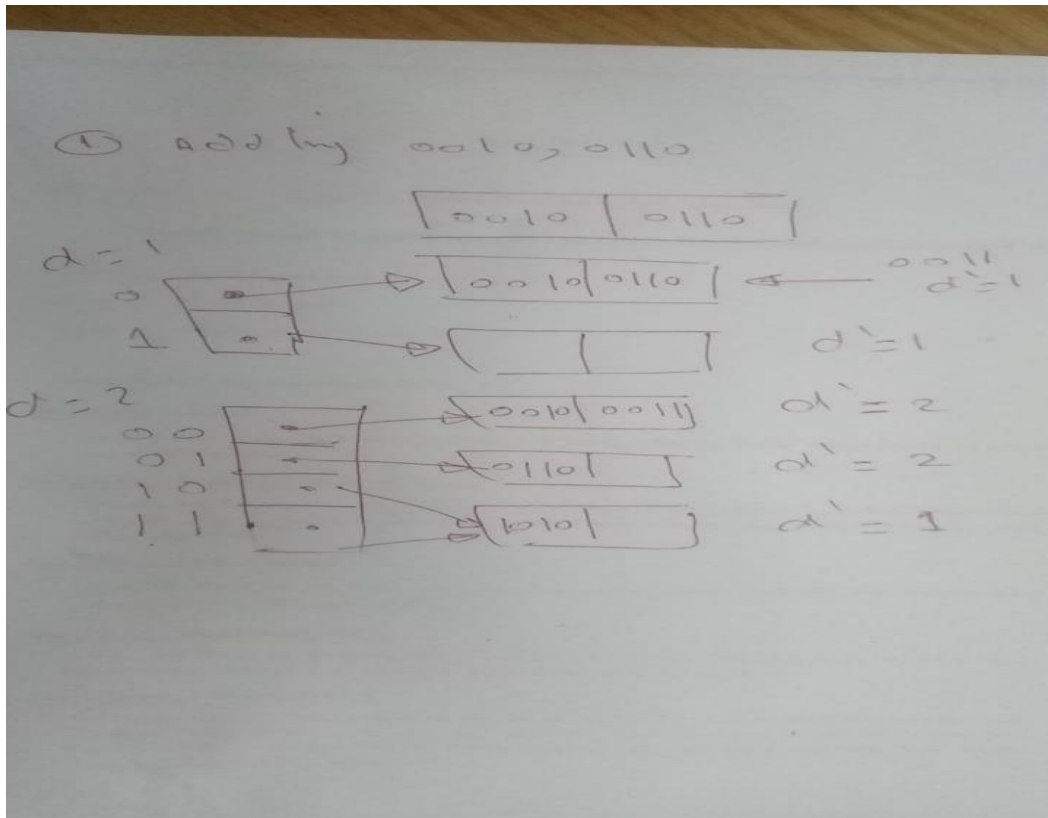 ① Adding 0010, 0110
0010 0110
d = 1
0 0010 0110 0011
d' = 1
1 d' = 1
d = 2
00 0010 0011 d' = 2
01 0110 d' = 2
10
11 1010 d' = 1